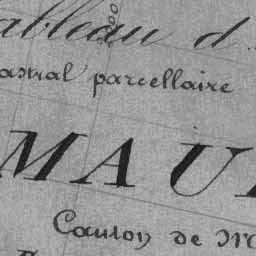 ableau d
astral parcellaire
MAU
Canton de M